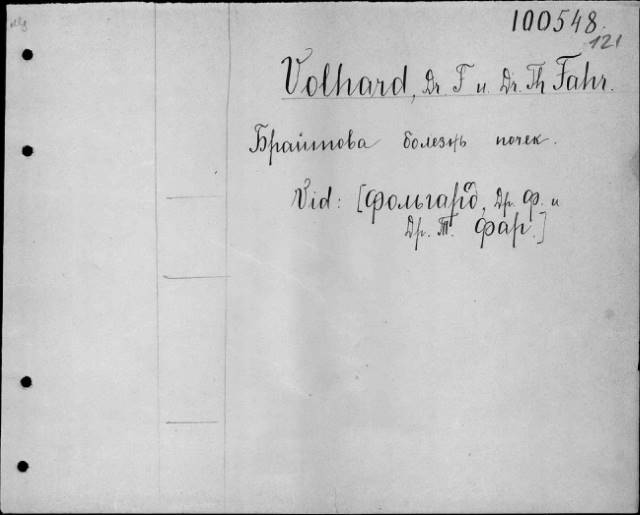 100548.
121
Volhard, Dr. F u. Dr. Th Fahr.
Брайтова болезнь почек.
Vid: [Фольгард, Др. Ф. и
Др. Т. Фар.]